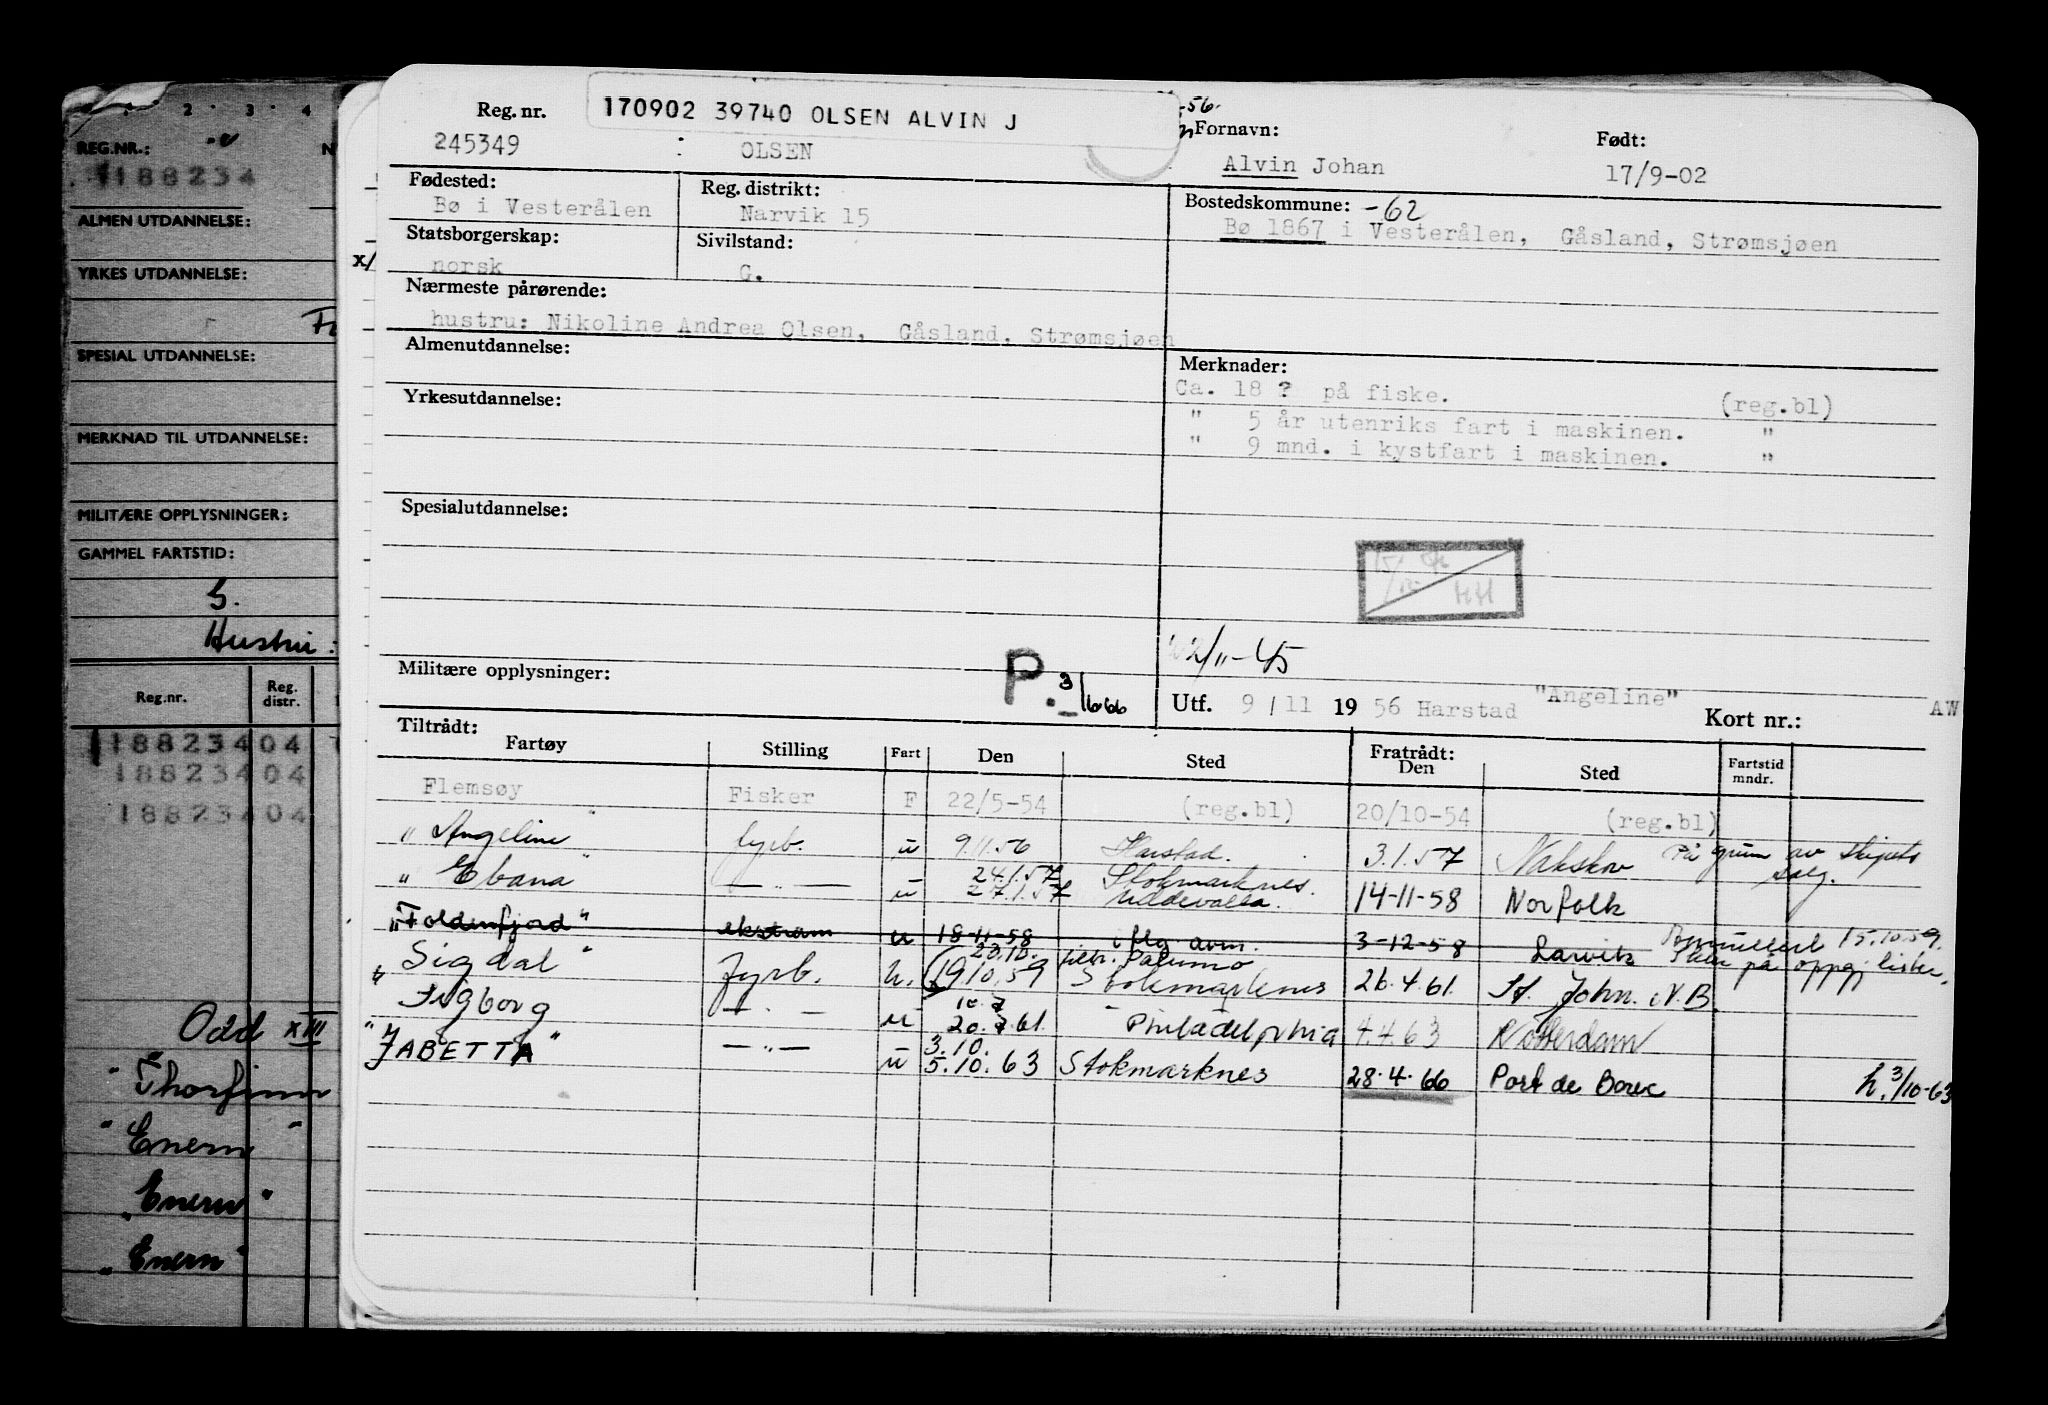 1 2 3 4
REG.NR.:
188234
ALMEN UTDANNELSE:
YRKES UTDANNELSE:
SPESIAL UTDANNELSE:
MERKNAD TIL UTDANNELSE:
MILITÆRE OPPLYSNINGER:
GAMMEL FARTSTID:
G.
Hustru:
Reg.nr. Reg. distr.
188234 04
188234 04
188234 04
Odd XIII
"Thorfinn
"Enern"
"Enern"
"Enern"
170902 39740 OLSEN ALVIN J
-56.
Reg. nr. Fornavn: Født:
245349 : OLSEN Alvin Johan 17/9-02
Fødested: Reg. distrikt: Bostedskommune: -62
Bø i Vesterålen Narvik 15 Bø 1867 i Vesterålen, Gåsland, Strømsjøen
Statsborgerskap: Sivilstand:
x/ norsk G.
Nærmeste pårørende:
hustru: Nikoline Andrea Olsen, Gåsland, Strømsjøen
Almenutdannelse:
Merknader:
Ca. 18 ? på fiske. (reg.bl)
" 5 år utenriks fart i maskinen. "
" 9 mnd. i kystfart i maskinen. "
Yrkesutdannelse:
Spesialutdannelse:
HH
/11-45
Militære opplysninger: P. 3/6-66
Utf. 9/11 1956 Harstad "Angeline" Kort nr.: AW
Tiltrådt: Fratrådt:
Fartøy Stilling Fart Den Sted Den Sted Fartstid mndr.
Flemsøy Fisker F 22/5-54 (reg.bl) 20/10-54 (reg.bl)
"Angeline" fyrb. u 9.11.56 Harstad. 3.1.57 Nakskov På grunn av skipets salg.
"Ebana" — " — u 24.1.57 27.1.57 Stokmarknes. Uddevalla. 14-11-58 Norfolk
"Foldenfjord" ekstram u 18-11-58 i flg. avm. 3-12-58 Larvik
"Sigdal" Fyrb. u. 20.10. 19.10.59 tiltr. Palermo Stokmarknes 26.4.61. St. John. N.B. 15.10.59. på oppgj. lister.
"Sigborg — " — u 20.7.61. Philadelphia 4.4.63 Rotterdam
"JABETTA" — " — u 3.10. 5.10.63 Stokmarknes 28.4.66 Port de Bouc h. 3/10-63